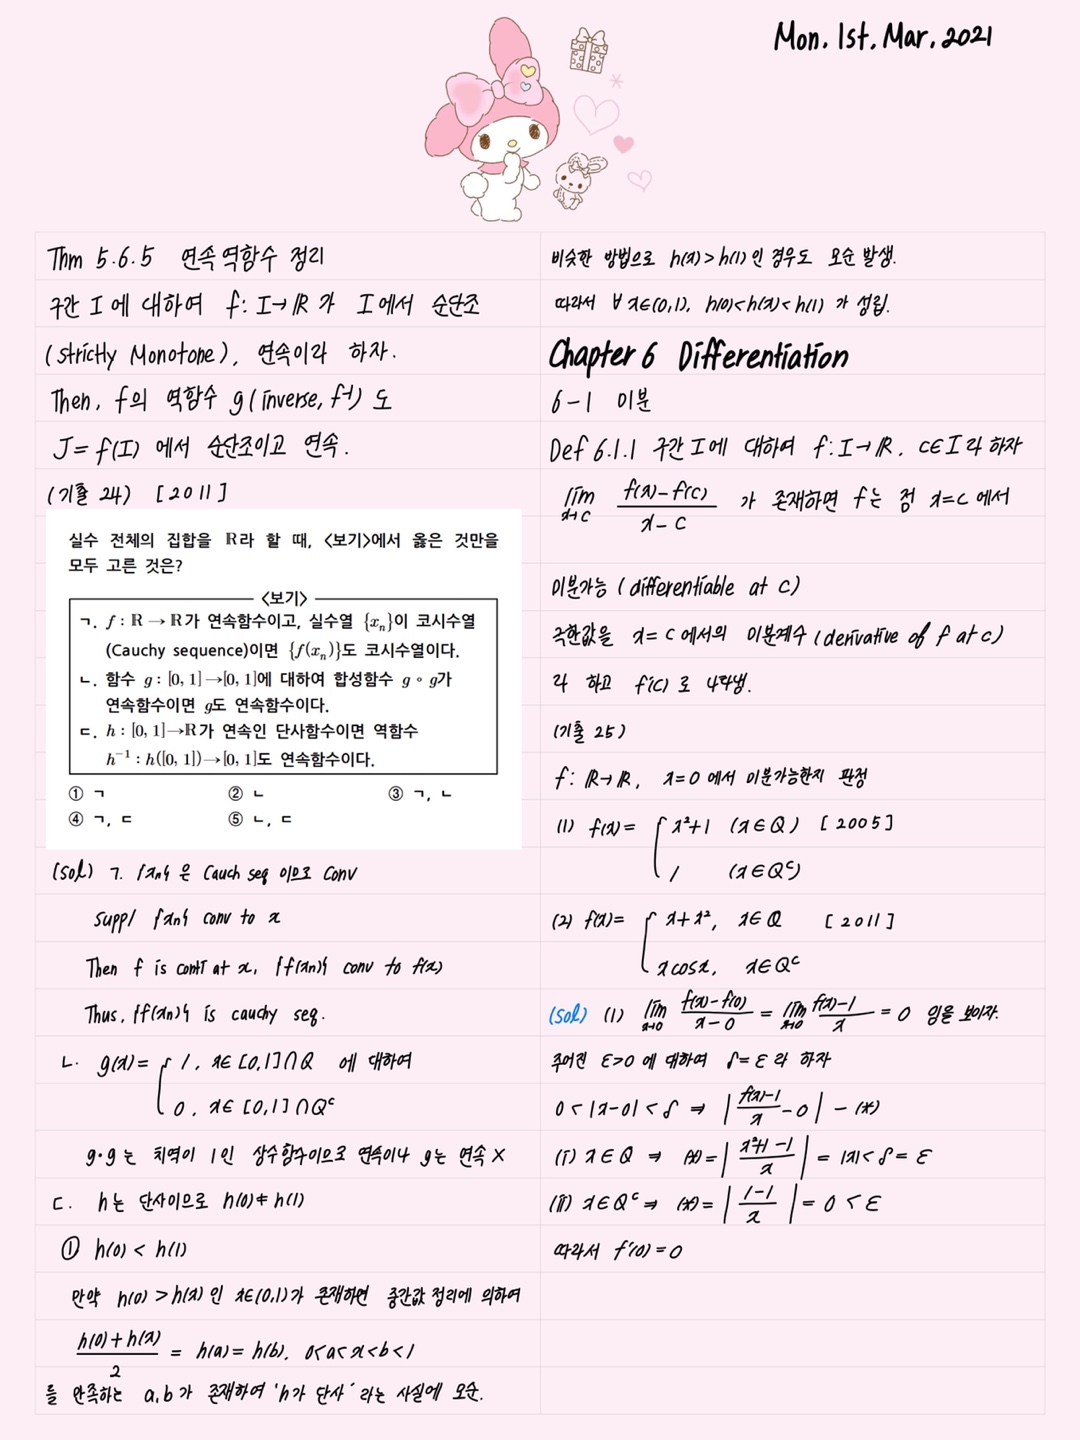 Mon. 1st. Mar. 2021
Thm 5.6.5 연속 역함수 정리
구간 I에 대하여 f: I→ℝ가 I에서 순단조
(strictly Monotone), 연속이라 하자.
Then, f의 역함수 g(inverse, f⁻¹) 도
J=f(I) 에서 순단조이고 연속.
(기출 24) [2011]
실수 전체의 집합을 ℝ라 할 때, <보기>에서 옳은 것만을
모두 고른 것은?
<보기>
ㄱ. f : ℝ → ℝ가 연속함수이고, 실수열 {xₙ}이 코시수열
(Cauchy sequence)이면 {f(xₙ)}도 코시수열이다.
ㄴ. 함수 g : [0, 1]→[0, 1]에 대하여 합성함수 g∘g가
연속함수이면 g도 연속함수이다.
ㄷ. h : [0, 1]→ℝ가 연속인 단사함수이면 역함수
h⁻¹ : h([0, 1])→[0, 1]도 연속함수이다.
① ㄱ ② ㄴ ③ ㄱ, ㄴ
④ ㄱ, ㄷ ⑤ ㄴ, ㄷ
(sol) ㄱ. {xₙ}은 Cauch seq 이므로 conv
supp/ {xₙ} conv to x
Then f is conti at x, {f(xₙ)} conv to f(x)
Thus, {f(xₙ)} is cauchy seq.
ㄴ. g(x)= { 1, x∈[0,1]∩Q 에 대하여
0, x∈[0,1]∩Qᶜ
g∘g는 치역이 1인 상수함수이므로 연속이나 g는 연속 X
ㄷ. h는 단사이므로 h(0)≠h(1)
① h(0) < h(1)
만약 h(0) > h(x) 인 x∈(0,1)가 존재하면 중간값 정리에 의하여
(h(0)+h(x))/2 = h(a) = h(b), 0<a<x<b<1
를 만족하는 a,b가 존재하여 'h가 단사' 라는 사실에 모순.
비슷한 방법으로 h(x)>h(1)인 경우도 모순 발생.
따라서 ∀x∈(0,1), h(0)<h(x)<h(1) 가 성립.
Chapter 6 Differentiation
6-1 미분
Def 6.1.1 구간 I에 대하여 f: I→ℝ, c∈I라 하자
lim x→c (f(x)-f(c))/(x-c) 가 존재하면 f는 점 x=c 에서
미분가능 (differentiable at c)
극한값을 x=c에서의 미분계수 (derivative of f at c)
라 하고 f'(c)로 나타냄.
(기출 25)
f: ℝ→ℝ, x=0 에서 미분가능한지 판정
(1) f(x)= { x²+1 (x∈Q) [2005]
1 (x∈Qᶜ)
(2) f(x)= { x+x², x∈Q [2011]
xcosx, x∈Qᶜ
(sol) (1) lim x→0 (f(x)-f(0))/(x-0) = lim x→0 (f(x)-1)/x = 0 임을 보이자.
주어진 ε>0에 대하여 δ=ε라 하자
0<|x-0|<δ ⇒ |(f(x)-1)/x - 0| - (*)
(i) x∈Q ⇒ (*)=|(x²+1-1)/x| = |x|<δ=ε
(ii) x∈Qᶜ ⇒ (*)=|(1-1)/x| = 0 < ε
따라서 f'(0)=0